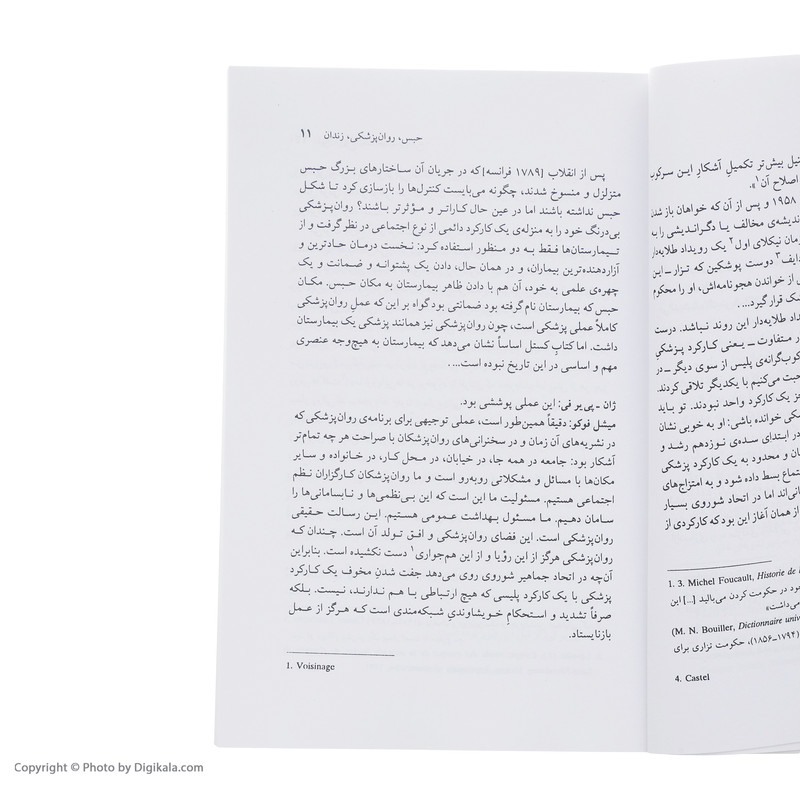 حبس، روان‌پزشکی، زندان ۱۱
پس از انقلاب [۱۷۸۹ فرانسه] که در جریان آن ساختارهای بزرگ حبس
متزلزل و منسوخ شدند، چگونه می‌بایست کنترل‌ها را بازسازی کرد تا شکل
حبس نداشته باشند اما در عین حال کاراتر و مؤثرتر باشند؟ روان‌پزشکی
بی‌درنگ خود را به منزله‌ی یک کارکرد دائمی از نوع اجتماعی در نظر گرفت و از
تیمارستان‌ها فقط به دو منظور استفاده کرد: نخست درمان حادترین و
آزاردهنده‌ترین بیماران، و در همان حال، دادن یک پشتوانه و ضمانت و یک
چهره‌ی علمی به خود، آن هم با دادن ظاهر بیمارستان به مکان حبس. مکان
حبس که بیمارستان نام گرفته بود ضمانتی بود گواه بر این که عملِ روان‌پزشکی
کاملاً عملی پزشکی است، چون روان‌پزشکی نیز همانند پزشکی یک بیمارستان
داشت. اما کتابِ کستل اساساً نشان می‌دهد که بیمارستان به هیچ‌وجه عنصری
مهم و اساسی در این تاریخ نبوده است....
ژان ـ پی‌یر فی: این عملی پوششی بود.
میشل فوکو: دقیقاً همین‌طور است، عملی توجیهی برای برنامه‌ی روان‌پزشکی که
در نشریه‌های آن زمان و در سخنرانی‌های روان‌پزشکان با صراحت هر چه تمام‌تر
آشکار بود: جامعه در همه جا، در خیابان، در محل کار، در خانواده و سایر
مکان‌ها با مسائل و مشکلاتی روبه‌رو است و ما روان‌پزشکان کارگزاران نظم
اجتماعی هستیم. مسئولیت ما این است که این بی‌نظمی‌ها و نابسامانی‌ها را
سامان دهیم. ما مسئول بهداشت عمومی هستیم. این رسالت حقیقی
روان‌پزشکی است. این فضای روان‌پزشکی و افق تولد آن است. چندان که
روان‌پزشکی هرگز از این رؤیا و از این هم‌جواری۱ دست نکشیده است. بنابراین
آن‌چه در اتحاد جماهیر شوروی روی می‌دهد جفت شدنِ مخوف یک کارکرد
پزشکی با یک کارکرد پلیسی که هیچ ارتباطی با هم ندارند، نیست. بلکه
صرفاً تشدید و استحکامِ خویشاوندیِ شبکه‌مندی است که هرگز از عمل
بازنایستاد.
1. Voisinage
نیل بیش‌تر تکمیلِ آشکارِ این سرکوب
اصلاح آن۱».
۱۹۵۸ و پس از آن که خواهان باز شدن
ندیشه‌ی مخالف یا دگراندیشی را به
مان نیکلای اول۲ یک رویداد طلایه‌دار
دایف۳ دوست پوشکین که تزار ـ این
س از خواندن هجونامه‌اش، او را محکوم
ک قرار گیرد....
داد طلایه‌دار این روند نباشد. درست
ر متفاوت ـ یعنی کارکرد پزشکیِ
کوب‌گرانه‌ی پلیس از سوی دیگر ـ در
حبت می‌کنیم با یکدیگر تلاقی کردند.
جز یک کارکرد واحد نبودند. تو باید
کی خوانده باشی: او به خوبی نشان
در ابتدای سده‌ی نوزدهم رشد و
ان و محدود به یک کارکرد پزشکی
تماع بسط داده شود و به امتزاج‌های
انی‌اند اما در اتحاد شوروی بسیار
از همان آغاز این بود که کارکردی از
1. 3. Michel Foucault, Historie de l
ود در حکومت کردن می‌بالید [...] این
می‌داشت»
(M. N. Bouiller, Dictionnaire univ
(۱۷۹۴ـ۱۸۵۶)، حکومت تزاری برای
4. Castel
Copyright © Photo by Digikala.com